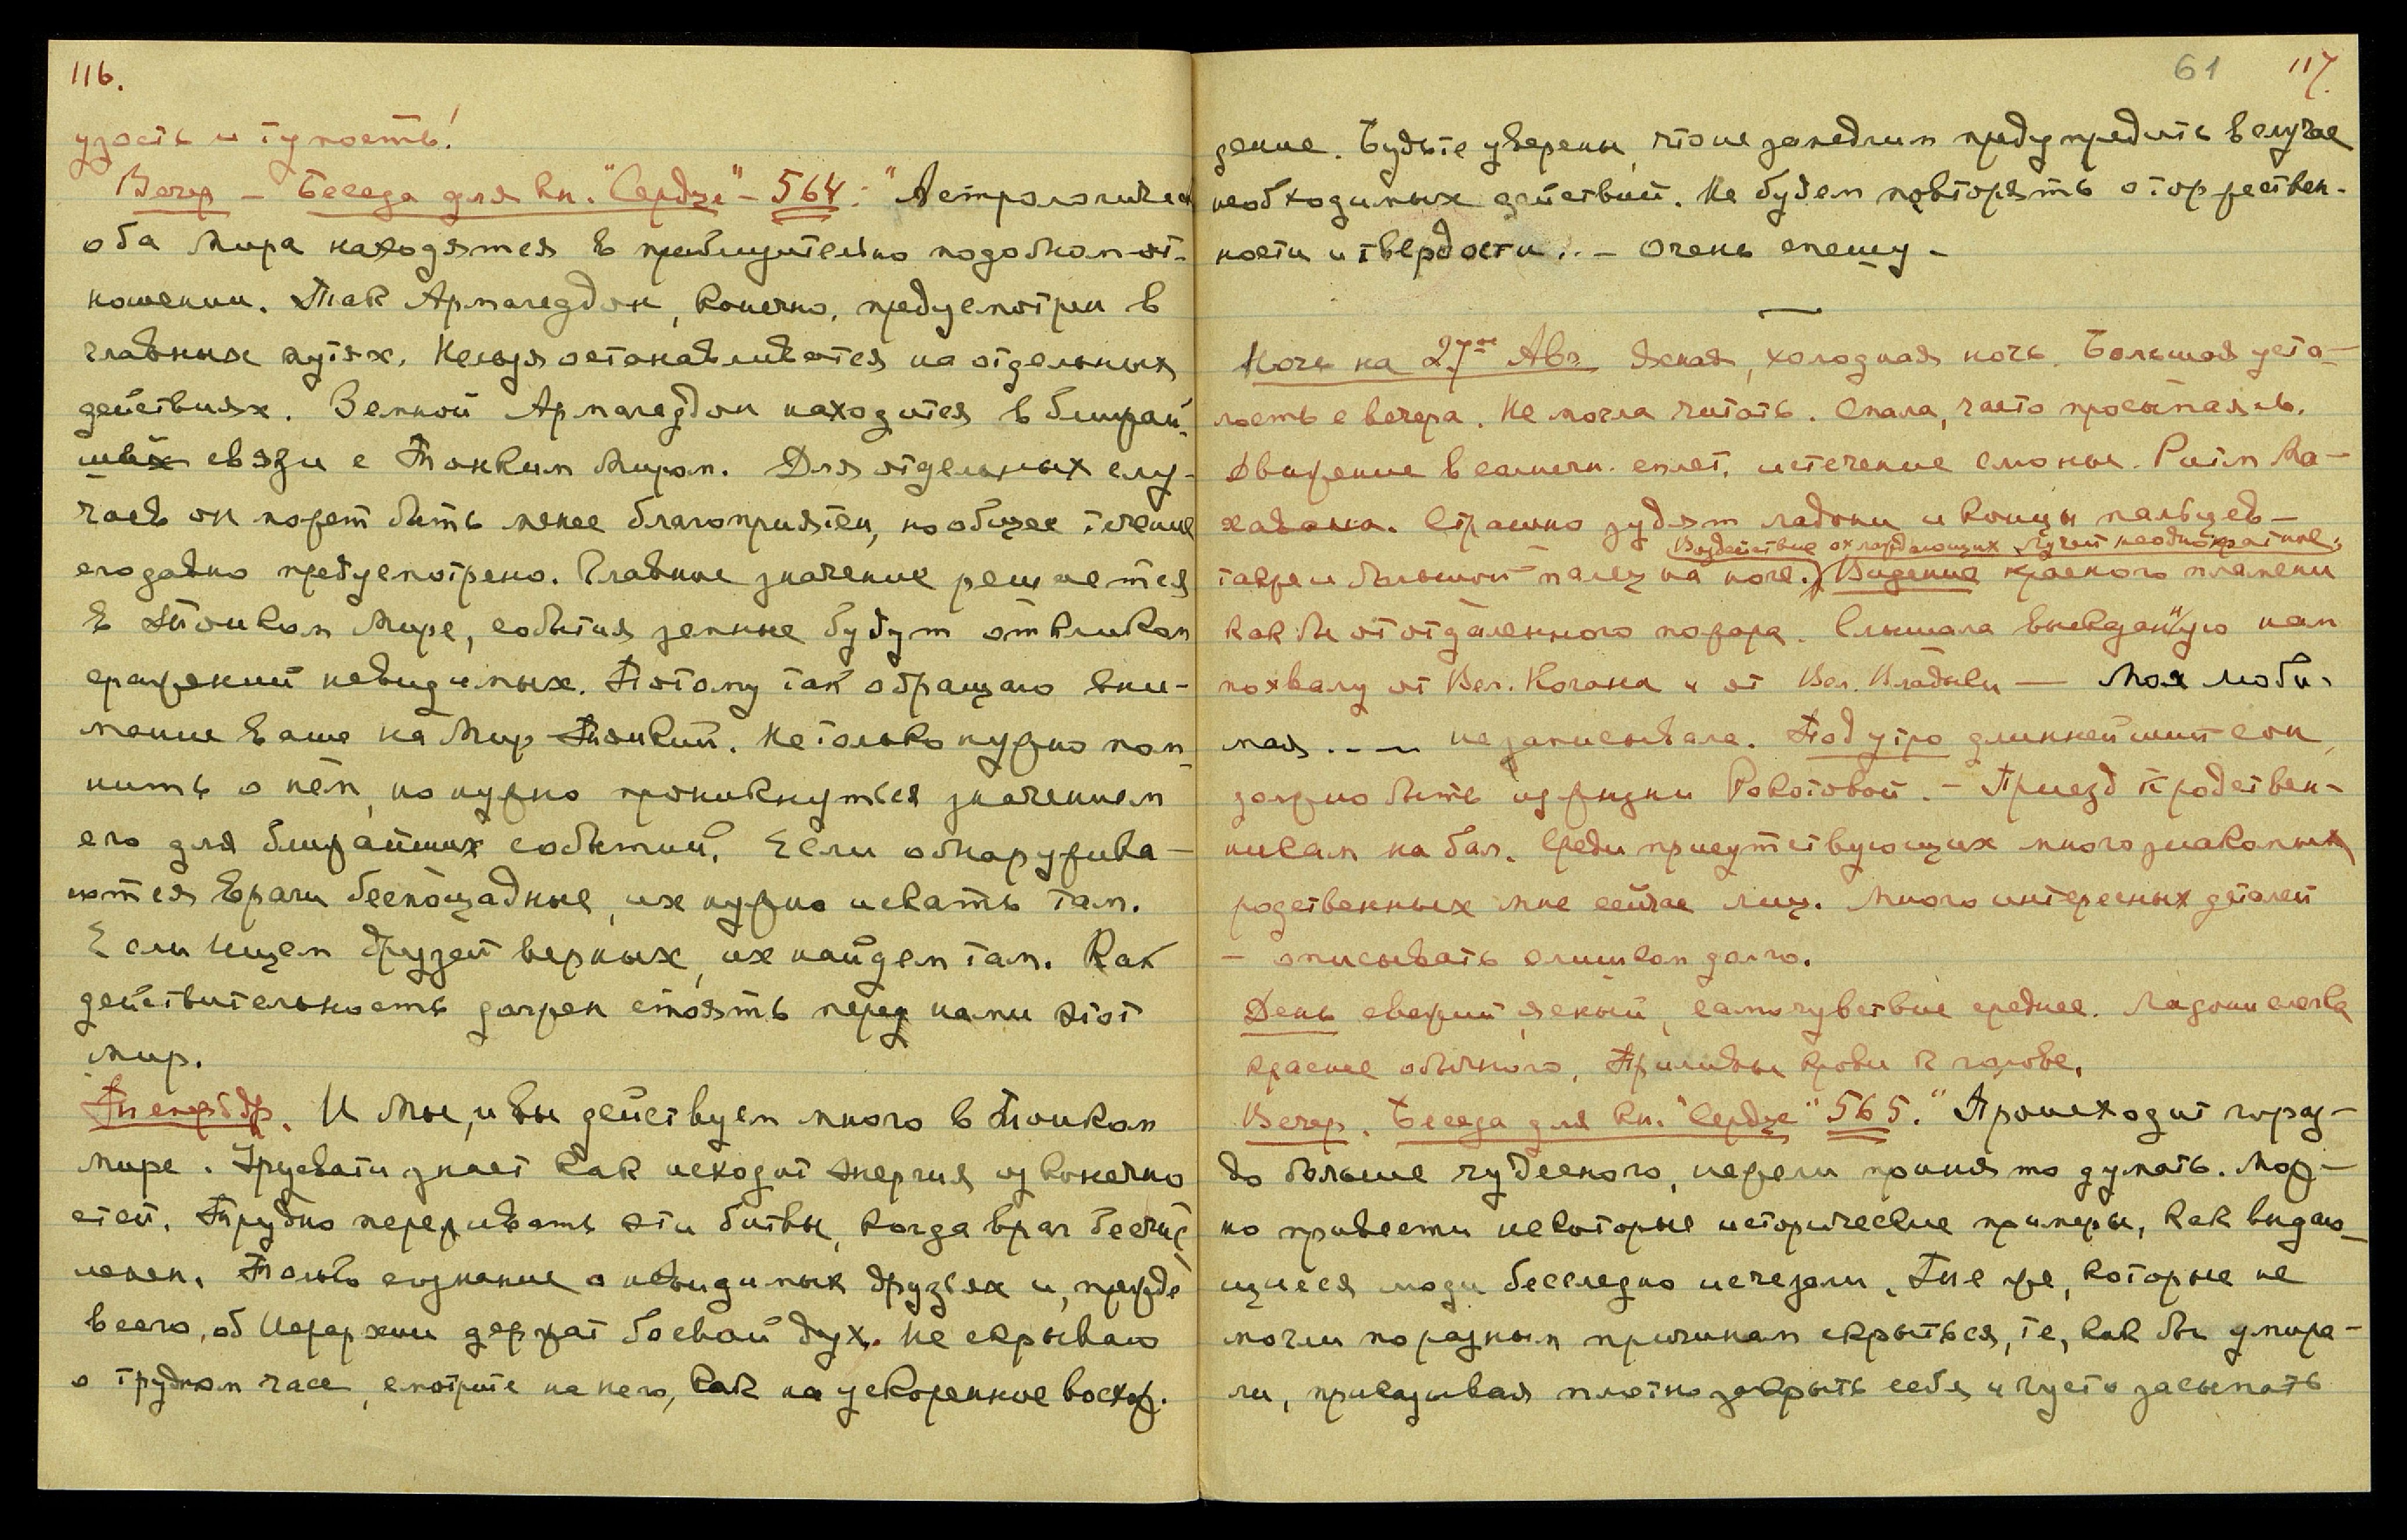 116.
узость и тупость!
Вечер – Беседа для кн. "Сердце" – 564: "Астрологически
оба Мира находятся в приблизительно подобном от-
ношении. Так Армагеддон, конечно, предусмотрен в
главных путях. Нельзя останавливаться на отдельных
действиях. Земной Армагеддон находится в ближай-
шей связи с Тонким Миром. Для отдельных слу-
чаев он может быть менее благоприятен, но общее течение
его давно предусмотрено. Главное значение решается
в Тонком Мире, события земные будут откликом
сражений невидимых. Потому так обращаю вни-
мание ваше на Мир Тонкий. Не только нужно пом-
нить о нём, но нужно проникнуться значением
его для ближайших событий. Если обнаружива-
ются враги беспощадные, их нужно искать там.
Если ищем друзей верных, их найдем там. Как
действительность должен стоять перед нами этот
Мир.
Теперь др. И Мы, и вы действуем много в Тонком
Мире. Урусвати знает как исходит энергия из конечно
стей. Трудно пережевать эти битвы, когда враг бесчис
ленен. Только сознание о невидимых друзьях и, прежде
всего, об Иерархии держат боевой дух. Не скрываю
о трудном часе, смотрите на него, как на ускоренное восхож.
61 117.
дение. Будьте уверены, что не замедлим предупредить в случае
необходимых действий. Не будем повторять о торжествен-
ности и твердости... – Очень спешу –
Ночь на 27ое Авг. Ясная, холодная ночь. Большая уста-
лость с вечера. Не могла читать. Спала, часто просыпаясь.
Движение в солнечн. сплет. истечение слюны. Ритм Ма-
хавана. Страшно зудят ладони и концы пальцев –
Воздействие охлаждающих Лучей неоднократное.
также и большой палец на ноге. Видение красного пламени
как бы от отдаленного пожара. Слышала высказанную нам
похвалу от Вел. Когана и от Вел. Владыки — Моя люби-
мая .... не записывала. Под утро длиннейший сон,
должно быть из жизни Рокотовой. – Приезд к родствен-
никам на бал. Среди присутствующих много знакомых
родственных мне сейчас лиц. Много интересных деталей
– описывать слишком долго.
День свежий, ясный, самочувствие среднее. Ладони слегка
краснее обычного. Приливы крови к голове.
Вечер. Беседа для кн. "Сердце" 565. "Происходит горaз-
до больше чудесного, нежели принято думать. Мож-
но привести некоторые исторические примеры, как выдаю-
щиеся люди бесследно исчезали. Те же, которые не
могли по разным причинам скрыться, те, как бы умира-
ли, приказывая плотно закрыть себя и густо засыпать